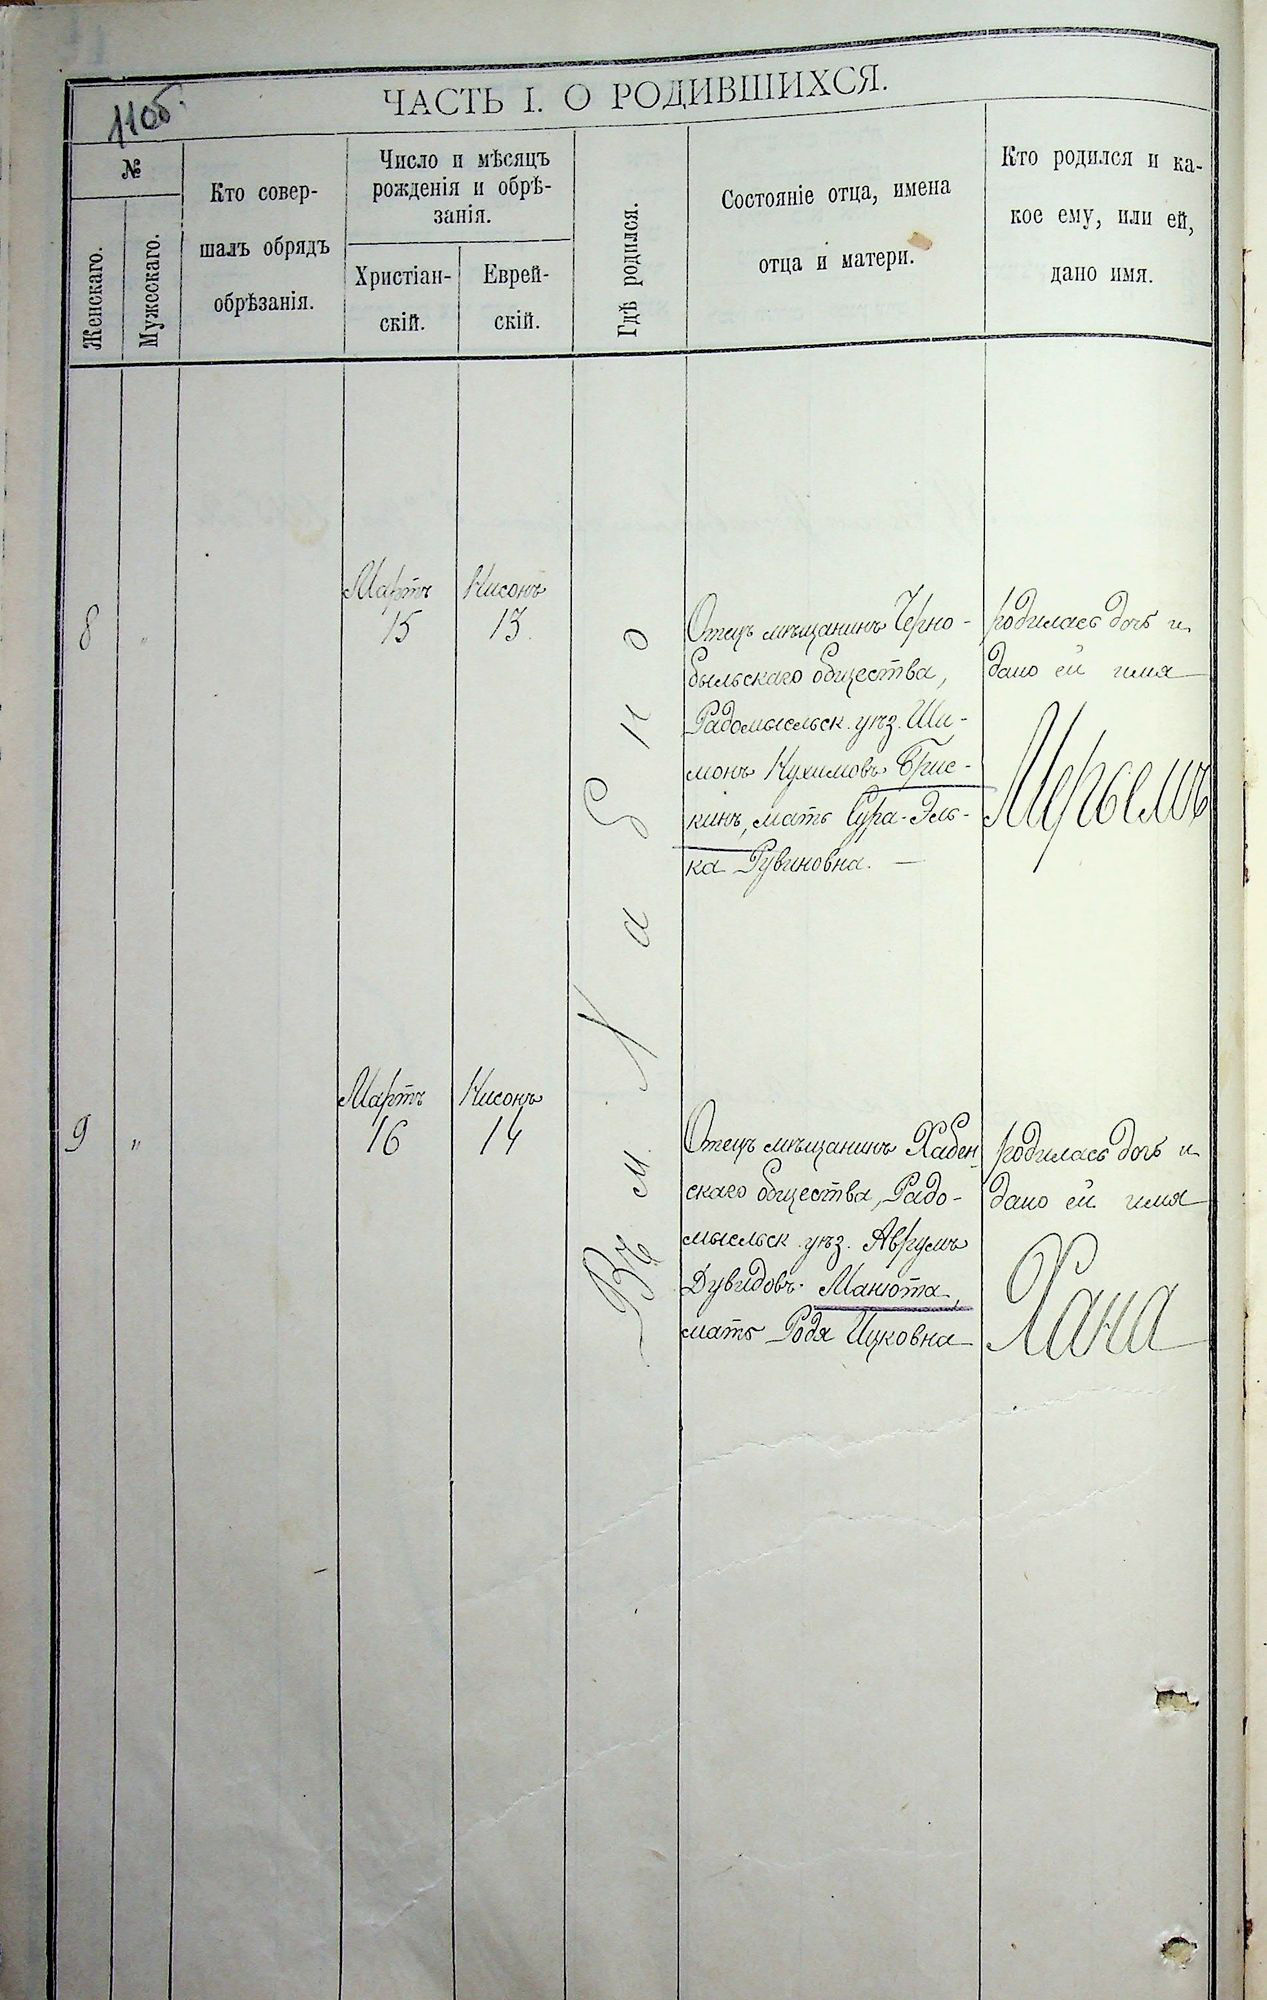 11об.
ЧАСТЬ I. О РОДИВШИХСЯ.
№
Женскаго.
Мужескаго.
Кто совер-
шалъ обрядъ
обрѣзанія.
Число и мѣсяцъ
рожденія и обрѣ-
занія.
Христіан-
скій.
Еврей-
скій.
Гдѣ родился.
Состояніе отца, имена
отца и матери.
Кто родился и ка-
кое ему, или ей,
дано имя.
8
"
Мартъ
15
Нисонъ
13.
Въ м. Хабно
Отецъ мѣщанинъ Черно-
быльскаго общества,
Радомысльск. уѣз. Ши-
монъ Нухимовъ Брис-
кинъ, мать Сура-Эль-
ка Рувиновна. —
родилась дочь и
дано ей имя
Мерьемъ
9
"
Мартъ
16
Нисонъ
14
Отецъ мѣщанинъ Хабен-
скаго общества, Радо-
мысльск. уѣз. Аврумъ
Дувидовъ Манюта,
мать Родя Ицковна
родилась дочь и
дано ей имя
Хана